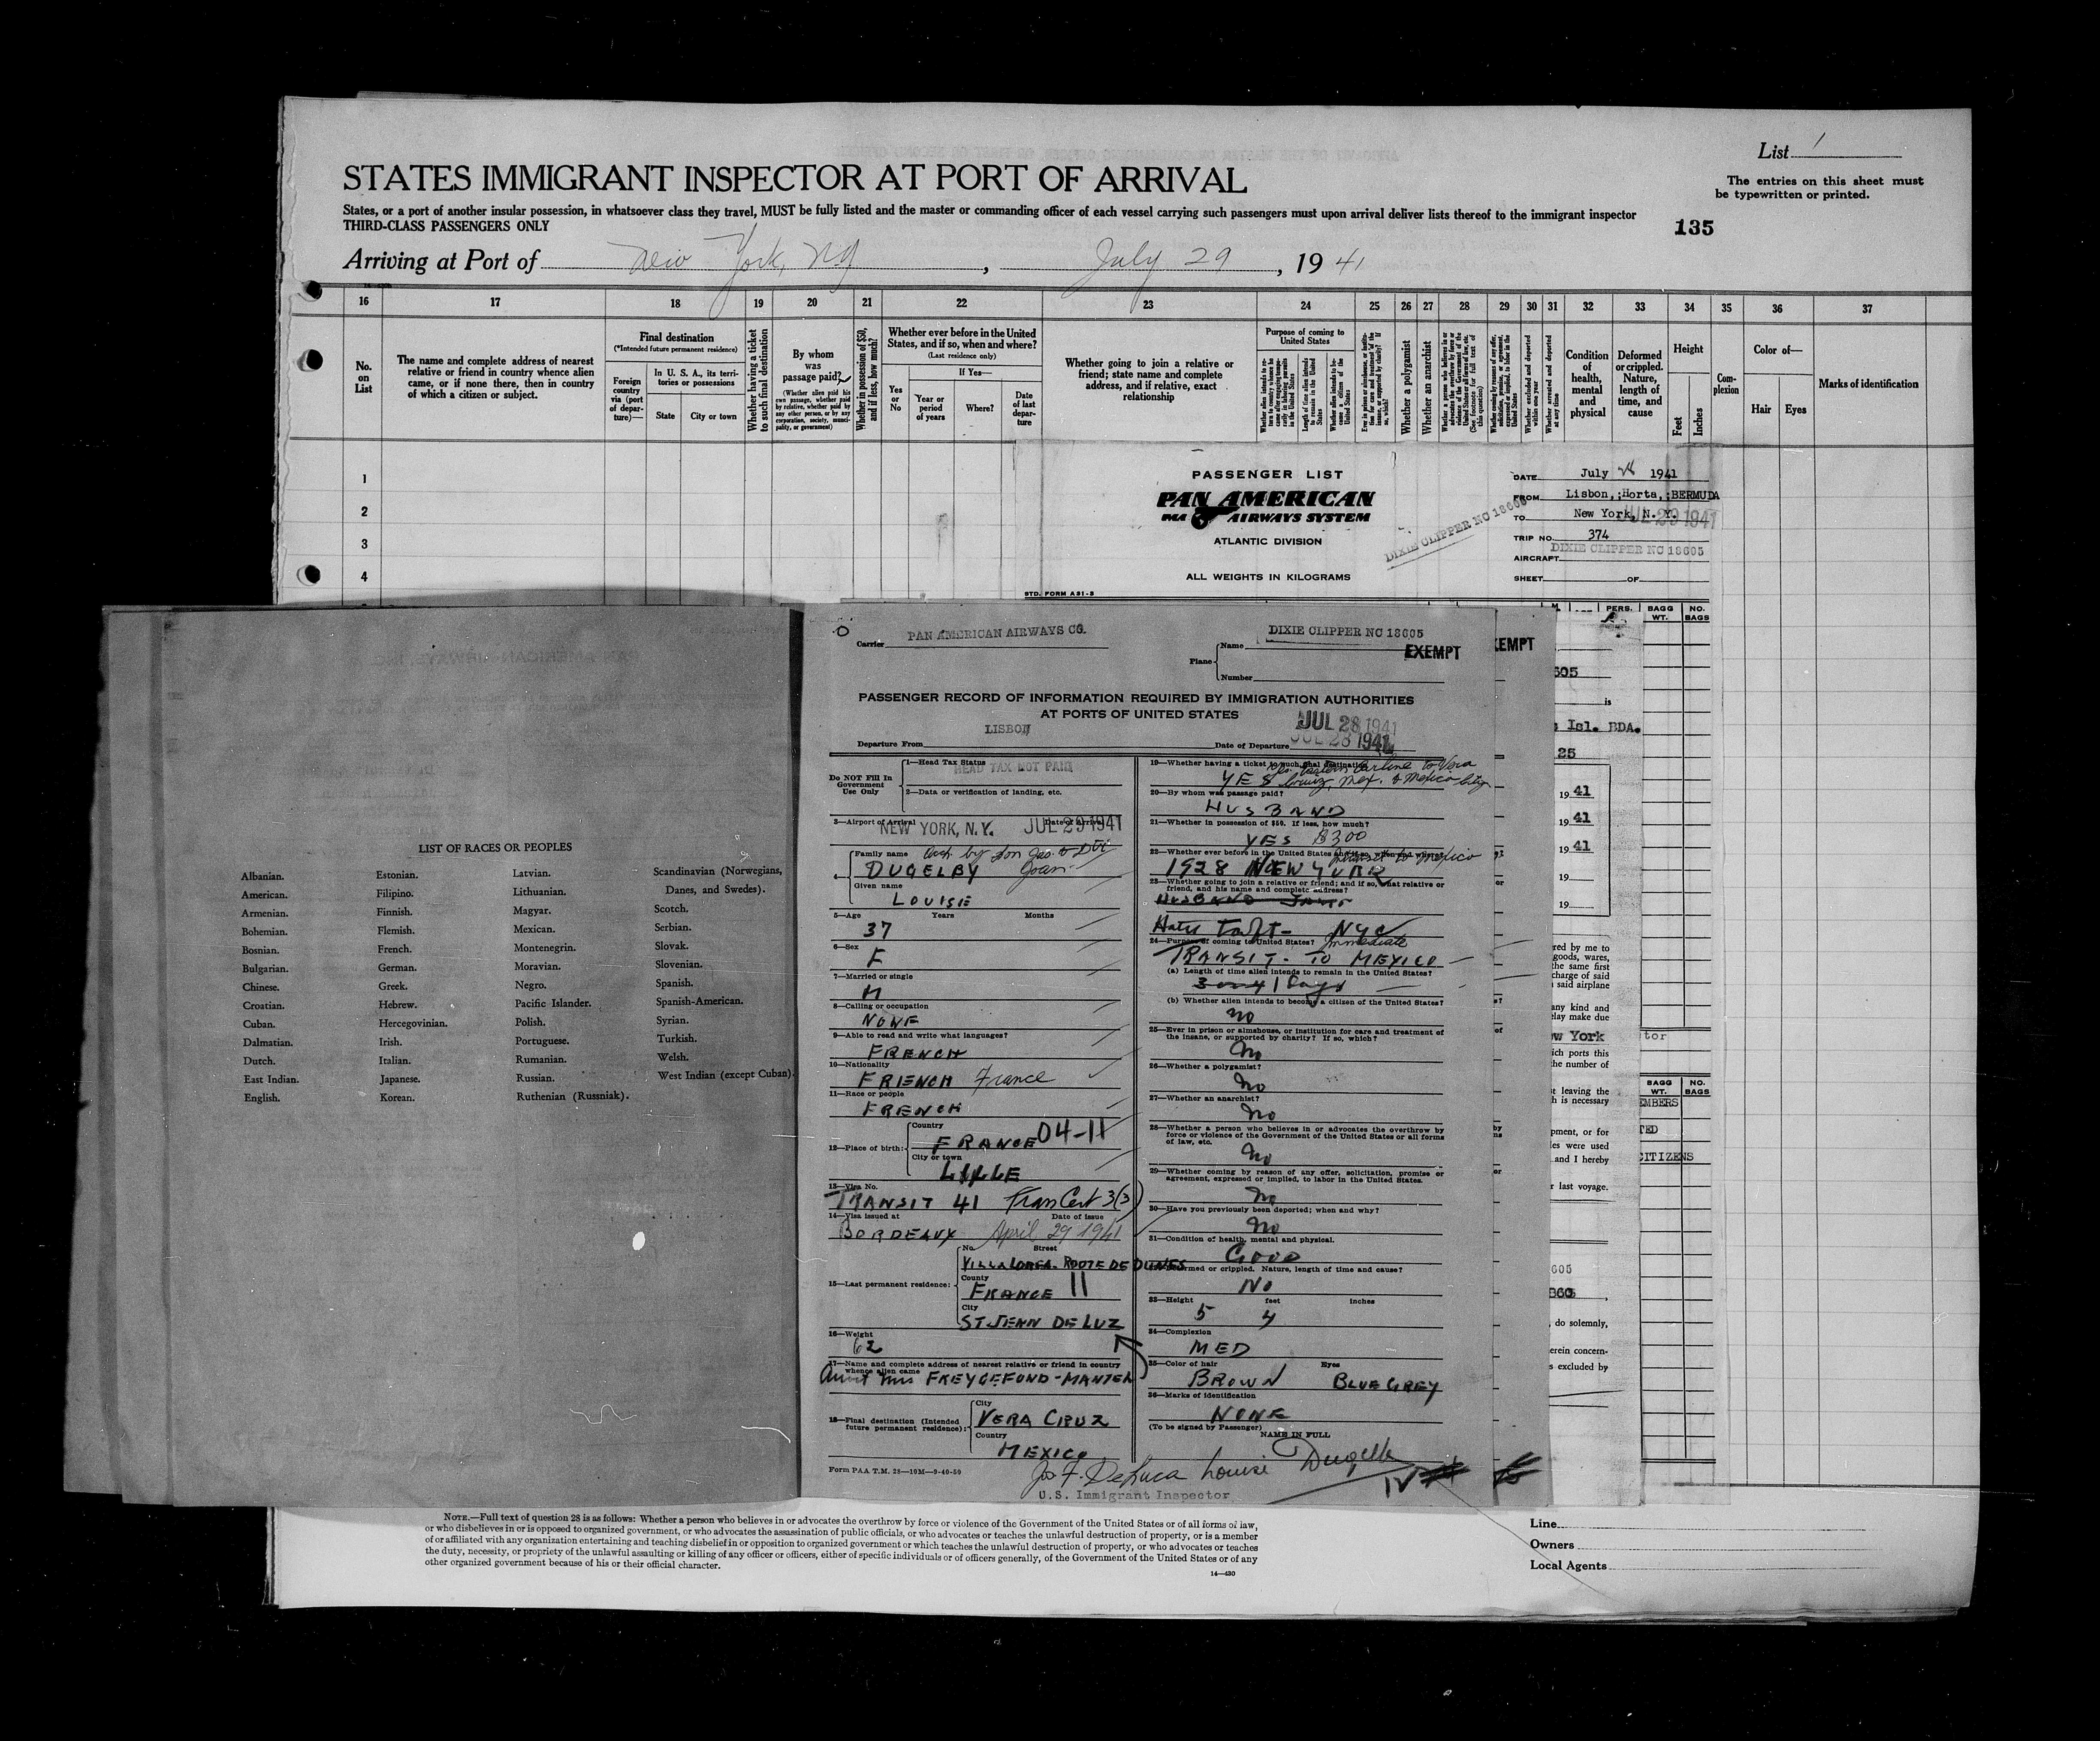 List 1
The entries on this sheet must
be typewritten or printed.
STATES IMMIGRANT INSPECTOR AT PORT OF ARRIVAL
States, or a port of another insular possession, in whatsoever class they travel, MUST be fully listed and the master or commanding officer of each vessel carrying such passengers must upon arrival deliver lists thereof to the immigrant inspector
THIRD-CLASS PASSENGERS ONLY
135
Arriving at Port of New York, NY, July 29, 1941
16 17 18 19 20 21 22 23 24 25 26 27 28 29 30 31 32 33 34 35 36 37
No. on List
The name and complete address of nearest
relative or friend in country whence alien
came, or if none there, then in country
of which a citizen or subject.
Final destination
(*Intended future permanent residence)
Foreign
country
via (port
of depar-
ture)—
In U. S. A., its terri-
tories or possessions
State
City or town
Whether having a ticket
to such final destination
By whom
was
passage paid?
(Whether alien paid his
own passage, whether paid
by relative, whether paid by
any other person, or by any
corporation, society, munici-
pality, or government)
Whether in possession of $50,
and if less, how much?
Whether ever before in the United
States, and if so, when and where?
(Last residence only)
Yes
or
No
If Yes—
Year or
period
of years
Where?
Date
of last
depar-
ture
Whether going to join a relative or
friend; state name and complete
address, and if relative, exact
relationship
Purpose of coming to
United States
Whether a polygamist
Whether an anarchist
Condition
of
health,
mental
and
physical
Deformed
or crippled.
Nature,
length of
time, and
cause
Height
Feet
Inches
Com-
plexion
Color of—
Hair
Eyes
Marks of identification
1
2
3
4
PASSENGER LIST
PAN AMERICAN
PAA AIRWAYS SYSTEM
ATLANTIC DIVISION
ALL WEIGHTS IN KILOGRAMS
STD. FORM A31-8
DIXIE CLIPPER NC 18605
DATE July 28 1941
FROM Lisbon,;Horta,;BERMUDA
TO New York, N. Y.
JUL 29 1941
TRIP NO. 374
AIRCRAFT DIXIE CLIPPER NC 18605
SHEET OF
PERS. BAGG WT. NO. BAGS
LIST OF RACES OR PEOPLES
Albanian.
American.
Armenian.
Bohemian.
Bosnian.
Bulgarian.
Chinese.
Croatian.
Cuban.
Dalmatian.
Dutch.
East Indian.
English.
Estonian.
Filipino.
Finnish.
Flemish.
French.
German.
Greek.
Hebrew.
Hercegovinian.
Irish.
Italian.
Japanese.
Korean.
Latvian.
Lithuanian.
Magyar.
Mexican.
Montenegrin.
Moravian.
Negro.
Pacific Islander.
Polish.
Portuguese.
Rumanian.
Russian.
Ruthenian (Russniak).
Scandinavian (Norwegians,
Danes, and Swedes).
Scotch.
Serbian.
Slovak.
Slovenian.
Spanish.
Spanish-American.
Syrian.
Turkish.
Welsh.
West Indian (except Cuban).
Carrier PAN AMERICAN AIRWAYS CO.
Plane
Name DIXIE CLIPPER NC 18605
EXEMPT
Number
PASSENGER RECORD OF INFORMATION REQUIRED BY IMMIGRATION AUTHORITIES
AT PORTS OF UNITED STATES
Departure From LISBON
Date of Departure JUL 28 1941
JUL 28 1941
Do NOT Fill In
Government
Use Only
1—Head Tax Status
HEAD TAX NOT PAID
2—Data or verification of landing, etc.
3—Airport of Arrival NEW YORK, N.Y. Date of Arrival JUL 29 1941
4 Family name DUGELBY
Given name
LOUISE
5—Age Years Months
37
6—Sex
F
7—Married or single
M
8—Calling or occupation
NONE
9—Able to read and write what languages?
FRENCH
10—Nationality
FRIENCH France
11—Race or people
FRENCH
12—Place of birth:
Country
FRANCE 04-11
City or town
LILLE
13—Visa No.
TRANSIT 41 Tran Cert 3(3)
14—Visa issued at Date of issue
BORDEAUX April 29 1941
15—Last permanent residence:
No. Street
VILLA LOREA. ROUTE DE DUNES
County
FRANCE 11
City
ST JEAN DE LUZ
16—Weight
62
17—Name and complete address of nearest relative or friend in country
whence alien came
Aunt Mrs FREYGEFOND-MANTEL
18—Final destination (Intended
future permanent residence):
City
VERA CRUZ
Country
MEXICO
Form PAA T.M. 28—10M—9-40-50
19—Whether having a ticket to such final destination
YES
20—By whom was passage paid?
HUSBAND
21—Whether in possession of $50. If less, how much?
YES $300
22—Whether ever before in the United States and if so, when and where?
1928 NEW YORK
23—Whether going to join a relative or friend; and if so, what relative or
friend, and his name and complete address?
HUSBAND
Hotel Taft - NYC
24—Purpose of coming to United States? immediate
TRANSIT - TO MEXICO
(a) Length of time alien intends to remain in the United States?
3 or 4 Days
(b) Whether alien intends to become a citizen of the United States?
no
25—Ever in prison or almshouse, or institution for care and treatment of
the insane, or supported by charity? If so, which?
No
26—Whether a polygamist?
No
27—Whether an anarchist?
No
28—Whether a person who believes in or advocates the overthrow by
force or violence of the Government of the United States or all forms
of law, etc.
No
29—Whether coming by reason of any offer, solicitation, promise or
agreement, expressed or implied, to labor in the United States.
No
30—Have you previously been deported; when and why?
No
31—Condition of health, mental and physical.
GOOD
Deformed or crippled. Nature, length of time and cause?
NO
33—Height feet inches
5 4
34—Complexion
MED
35—Color of hair Eyes
BROWN BLUE GREY
36—Marks of identification
NONE
(To be signed by Passenger)
NAME IN FULL
Jos F. DeLuca Louise Dugelby
U.S. Immigrant Inspector
EMPT
605
is
s Isl. BDA.
25
19 41
19 41
19 41
19
19
red by me to
goods, wares,
the same first
charge of said
said airplane
any kind and
elay make due
ew York
ich ports this
the number of
t leaving the
h is necessary
pment, or for
les were used
and I hereby
r last voyage.
605
, do solemnly,
erein concern-
s excluded by
tor
BAGG WT. NO. BAGS
EMBERS
TED
CITIZENS
NOTE.—Full text of question 28 is as follows: Whether a person who believes in or advocates the overthrow by force or violence of the Government of the United States or of all forms of law,
or who disbelieves in or is opposed to organized government, or who advocates the assassination of public officials, or who advocates or teaches the unlawful destruction of property, or is a member
of or affiliated with any organization entertaining and teaching disbelief in or opposition to organized government or which teaches the unlawful destruction of property, or who advocates or teaches
the duty, necessity, or propriety of the unlawful assaulting or killing of any officer or officers, either of specific individuals or of officers generally, of the Government of the United States or of any
other organized government because of his or their official character.
14—430
Line
Owners
Local Agents